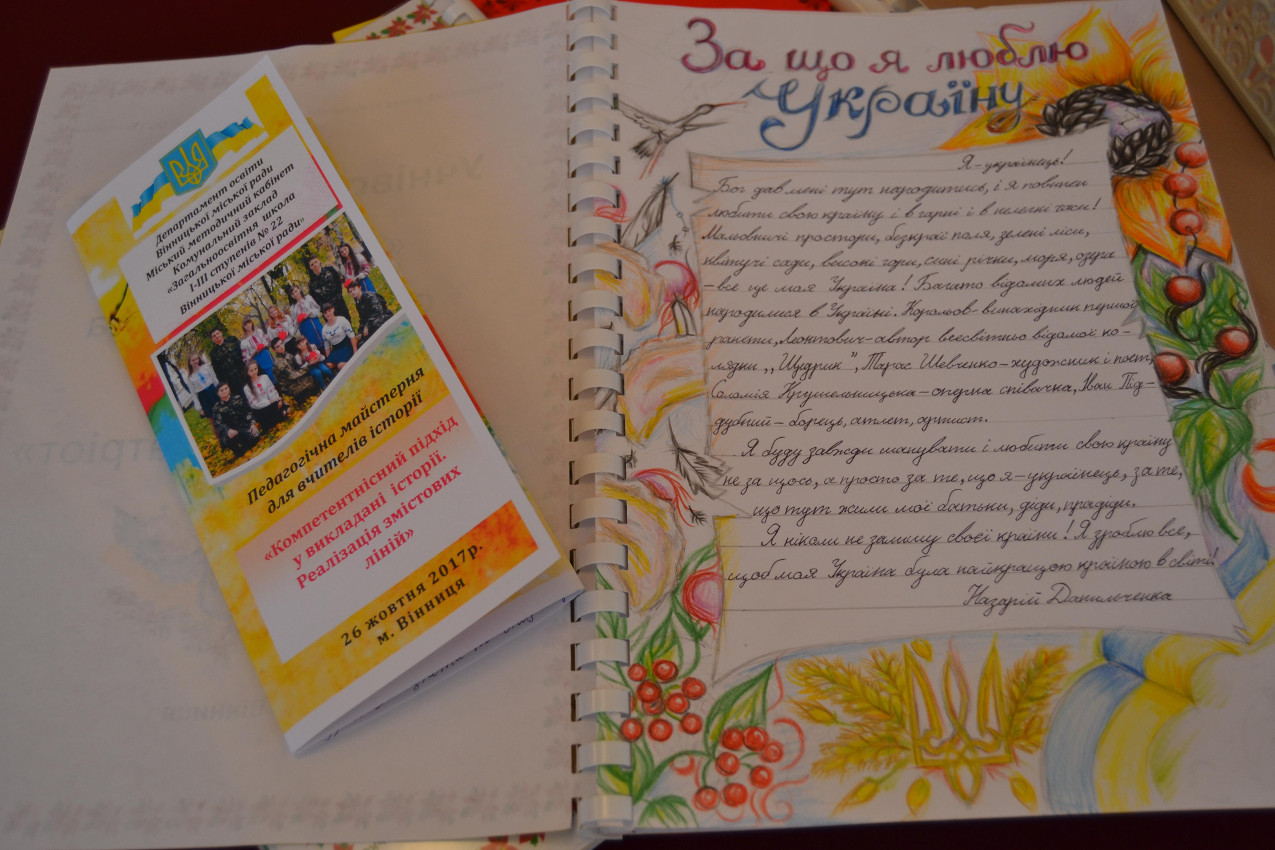 Департамент освіти
Вінницької міської ради
Міський методичний кабінет
Комунальний заклад
«Загальноосвітня школа
І-ІІІ ступенів № 22
Вінницької міської ради»
Педагогічна майстерня
для вчителів історії
«Компетентнісний підхід
у викладані історії.
Реалізація змістових
ліній»
26 жовтня 2017р.
м. Вінниця
За що я люблю
Україну
Я-українець!
Бог дав мені тут народитись, і я повинен
любити свою країну і в гарні і в нелегкі часи!
Мальовничі простори, безкраї поля, зелені ліси,
квітучі сади, високі гори, сині річки, моря, озера
-все це моя Україна! Багато відомих людей
народилися в Україні. Корольов-винахідник першої
ракети, Леонтович-автор всесвітньо відомої ко-
лядки ,,Щедрик", Тарас Шевченко-художник і поет,
Соломія Крушельницька-оперна співачка, Іван Під-
дубний-борець, атлет, артист.
Я буду завжди шанувати і любити свою країну
не за щось, а просто за те, що я-українець, за те,
що тут жили мої батьки, діди, прадіди.
Я ніколи не залишу своєї країни! Я зроблю все,
щоб моя Україна була найкращою країною в світі!
Назарій Данильченко